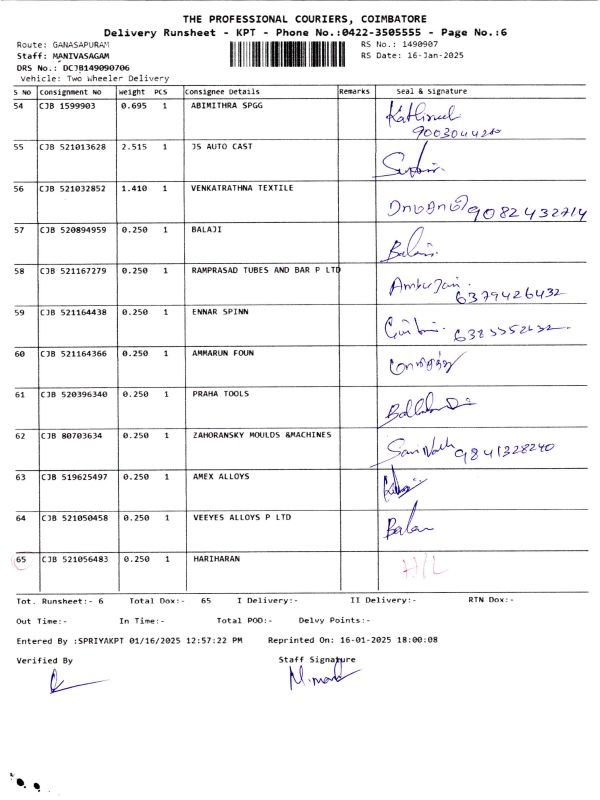 THE PROFESSIONAL COURIERS, COIMBATORE
Delivery Runsheet - KPT - Phone No.:0422-3505555 - Page No.:6
Route: GANASAPURAM RS No.: 1490907
Staff: MANIVASAGAM RS Date: 16-Jan-2025
DRS No.: DCJB149090706
Vehicle: Two Wheeler Delivery
S No Consignment No Weight PCS Consignee Details Remarks Seal & Signature
54 CJB 1599903 0.695 1 ABIMITHRA SPGG
55 CJB 521013628 2.515 1 JS AUTO CAST
56 CJB 521032852 1.410 1 VENKATRATHNA TEXTILE 9082432714
57 CJB 520894959 0.250 1 BALAJI
58 CJB 521167279 0.250 1 RAMPRASAD TUBES AND BAR P LTD 6379426432
59 CJB 521164438 0.250 1 ENNAR SPINN
60 CJB 521164366 0.250 1 AMMARUN FOUN
61 CJB 520396340 0.250 1 PRAHA TOOLS
62 CJB 80703634 0.250 1 ZAHORANSKY MOULDS &MACHINES 9841328240
63 CJB 519625497 0.250 1 AMEX ALLOYS
64 CJB 521050458 0.250 1 VEEYES ALLOYS P LTD Balan
65 CJB 521056483 0.250 1 HARIHARAN H/L
Tot. Runsheet:- 6 Total Dox:- 65 I Delivery:- II Delivery:- RTN Dox:-
Out Time:- In Time:- Total POD:- Delvy Points:-
Entered By :SPRIYAKPT 01/16/2025 12:57:22 PM Reprinted On: 16-01-2025 18:00:08
Verified By Staff Signature